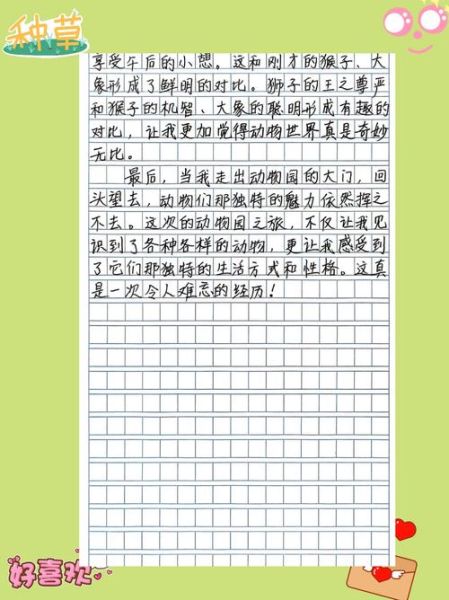 种草
享受午后的小憩。这和刚才的猴子、大
象形成了鲜明的对比。狮子的王之尊严
和猴子的机智、大象的聪明形成有趣的
对比，让我更加觉得动物世界真是奇妙
无比。
最后，当我走出动物园的大门，回
头望去，动物们那独特的魅力依然挥之
不去。这次的动物园之旅，不仅让我见
识到了各种各样的动物，更让我感受到
了它们那独特的生活方式和性格。这真
是一次令人难忘的经历！
好喜欢